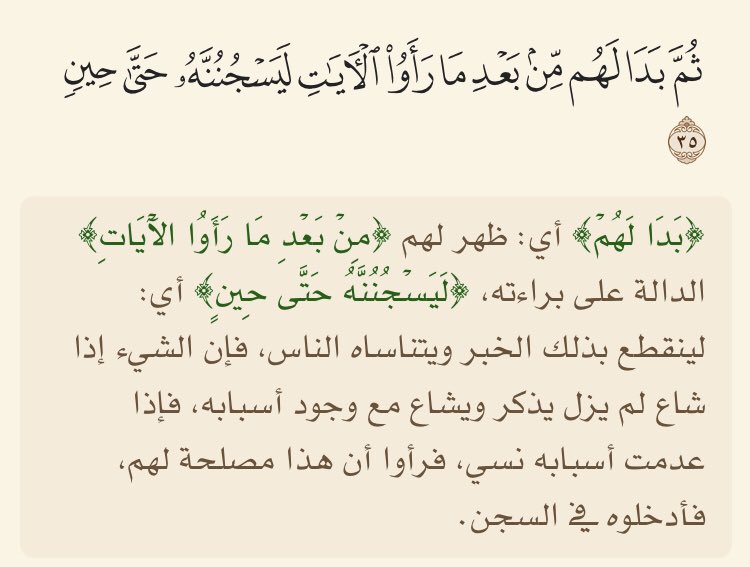 ثُمَّ بَدَا لَهُم مِّنۢ بَعۡدِ مَا رَأَوُاْ ٱلۡأٓيَٰتِ لَيَسۡجُنُنَّهُۥ حَتَّىٰ حِينٖ
٣٥
﴿بَدَا لَهُمْ﴾ أي: ظهر لهم ﴿مِنْ بَعْدِ مَا رَأَوُا الْآيَاتِ﴾
الدالة على براءته، ﴿لَيَسْجُنُنَّهُ حَتَّى حِينٍ﴾ أي:
لينقطع بذلك الخبر ويتناساه الناس، فإن الشيء إذا
شاع لم يزل يذكر ويشاع مع وجود أسبابه، فإذا
عدمت أسبابه نسي، فرأوا أن هذا مصلحة لهم،
فأدخلوه في السجن.